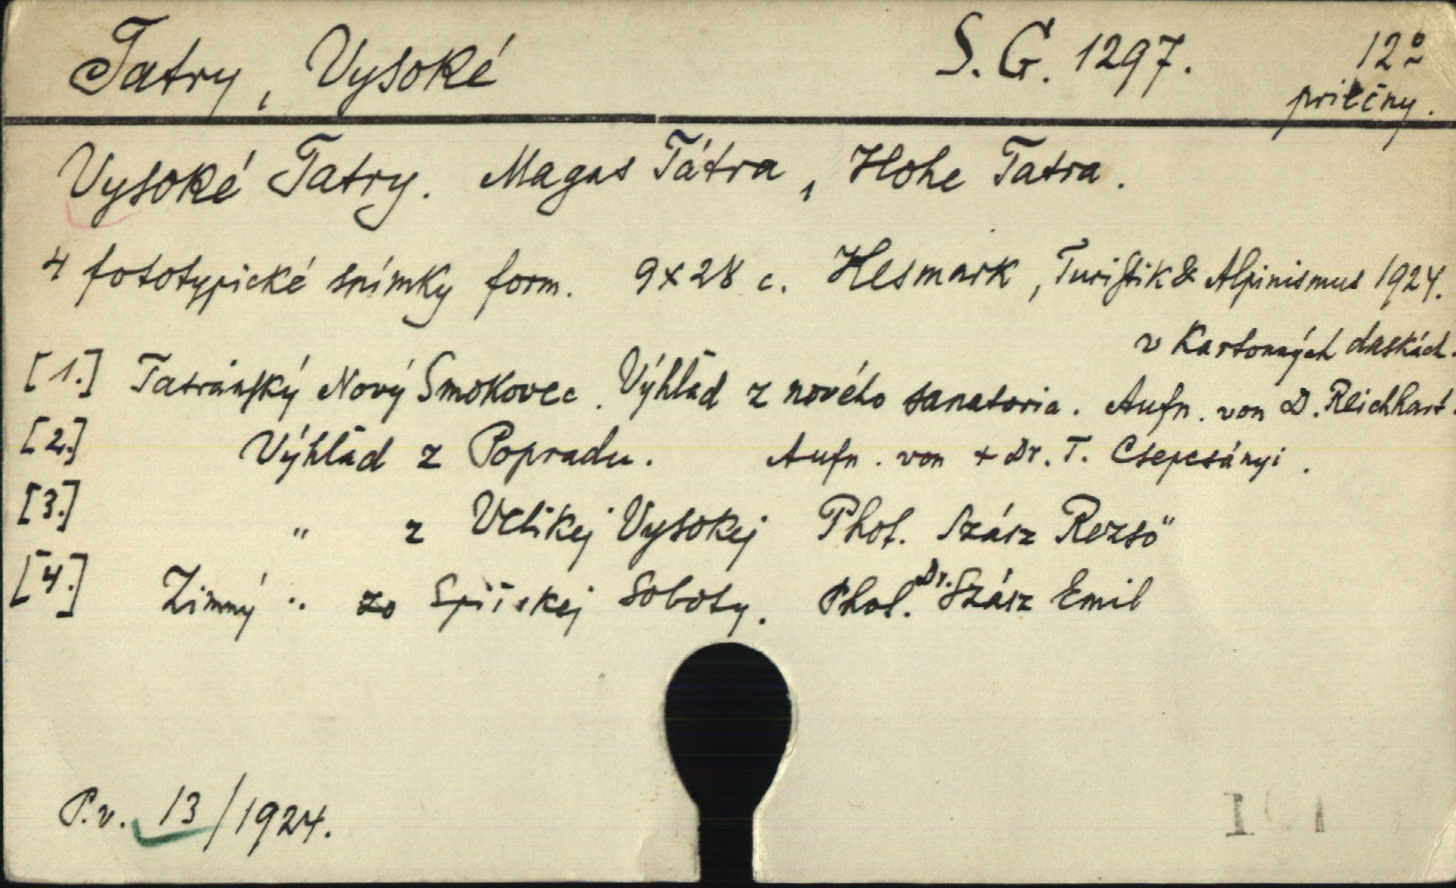 Tatry, Vysoké S. G. 1297. 12º
priečny.
Vysoké Tatry. Magas Tátra, Hohe Tatra.
4 fototypické snímky form. 9x28 c. Kesmark, Turistik & Alpinismus 1924.
v kartonných daskách.
[1.] Tatránský Nový Smokovec. Výhlād z nového sanatoria. Aufn. von D. Reichhart.
[2.] Výhlād z Popradu. Aufn. von + Dr. T. Csepcsányi.
[3.] " z Velikej Vysokej Phot. Szász Rezsö
[4.] Zimný " zo Spišskej Soboty. Phot. Dr. Szász Emil
P.v. 13/1924.